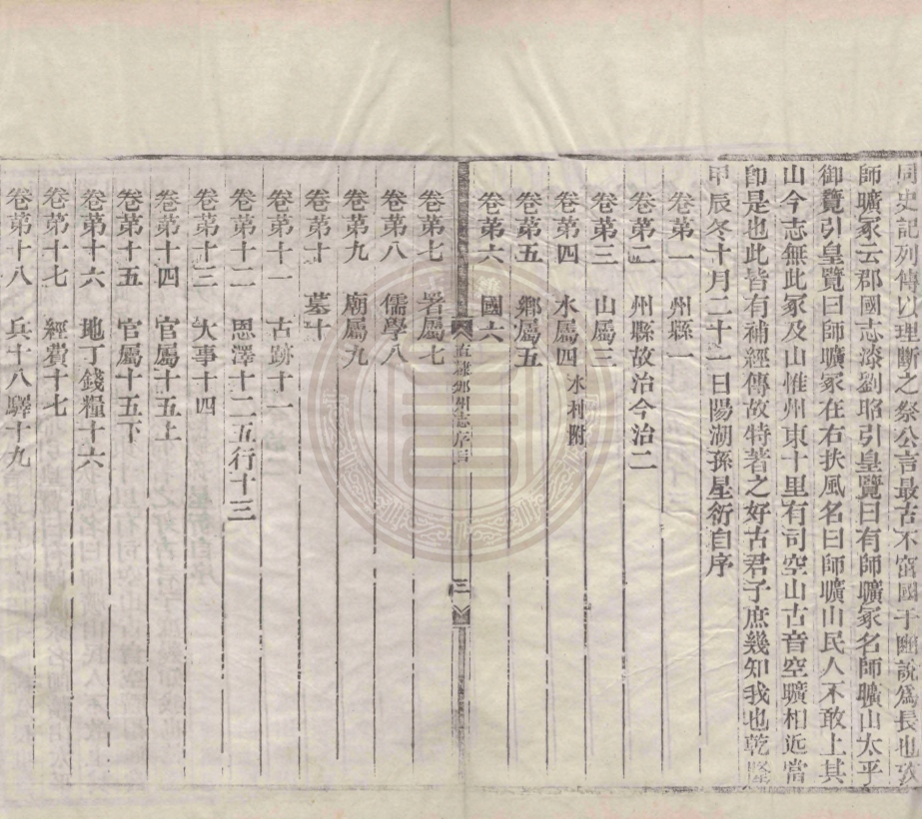 同史記列傳以理斷之祭公言最古不窋國于豳說爲長也攷
師曠冢云郡國志漆劉昭引皇覽曰有師曠冢名師曠山太平
御覽引皇覽曰師曠冢在右扶風名曰師曠山民人不敢上其
山今志無此冢及山惟州東十里有司空山古音空曠相近當
卽是也此皆有補經傳故特著之好古君子庶幾知我也乾隆
甲辰冬十月二十一日陽湖孫星衍自序
卷第一 州縣一
卷第二 州縣故治今治二
卷第三 山屬三
卷第四 水屬四 水村附
卷第五 鄉屬五
卷第六 國六
直隸邠州志序目 三
卷第七 署屬七
卷第八 儒學八
卷第九 廟屬九
卷第十 墓十
卷第十一 古跡十一
卷第十二 恩澤十二五行十三
卷第十三 大事十四
卷第十四 官屬十五上
卷第十五 官屬十五下
卷第十六 地丁錢糧十六
卷第十七 經費十七
卷第十八 兵十八驛十九